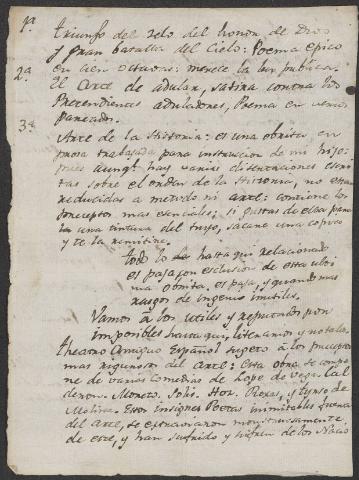 1ª
triunfo del zelo del honor de Dios
y gran batalla del Cielo: Poema Epico
en cien octavas: merece la luz publica.
2ª
El Arte de adular, satira contra los
Pretendientes aduladores, Poema en versos
pareados.
3ª
Arte de la Historia: es una obrita en
prosa trabajada para instrucion de mi hijo:
pues aunqe hay varias disertaciones escri
tas sobre el orden de la Historia, no estan
reducidas a metodo ni arte: contiene los
conceptos mas esenciales; si gustas de ella para
la una del tuyo, sacare una copia
y te la remitire.
todo lo hasta aqui relacionado
es paja con esclusion de esta ulti
ma obrita. es paja, y quando mas
rasgos de ingenio inutiles.
Vamos à los utiles y reputados por
imposibles hasta aqui, literarios y notales.
theatro Antiguo Español sugeto à los preceptos
mas rigurosos del Arte: Esta obra se compo
ne de varias comedias de Lope de Vega, Cal
deron, Moreto, Solis, Hoz, Roxas, y tyrso de
Molina. Estos insignes Poetas inimitables fuera
del Arte, se extraviaron monstruosamente
de este, y han sufrido y sufren de los Nacio